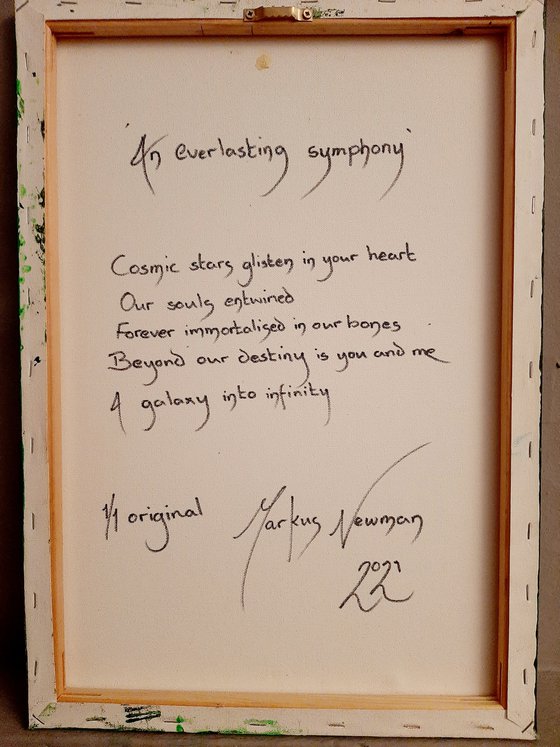 'An everlasting symphony'
Cosmic stars glisten in your heart
Our souls entwined
Forever immortalised in our bones
Beyond our destiny is you and me
A galaxy into infinity
1/1 original
Markus Newman
2021